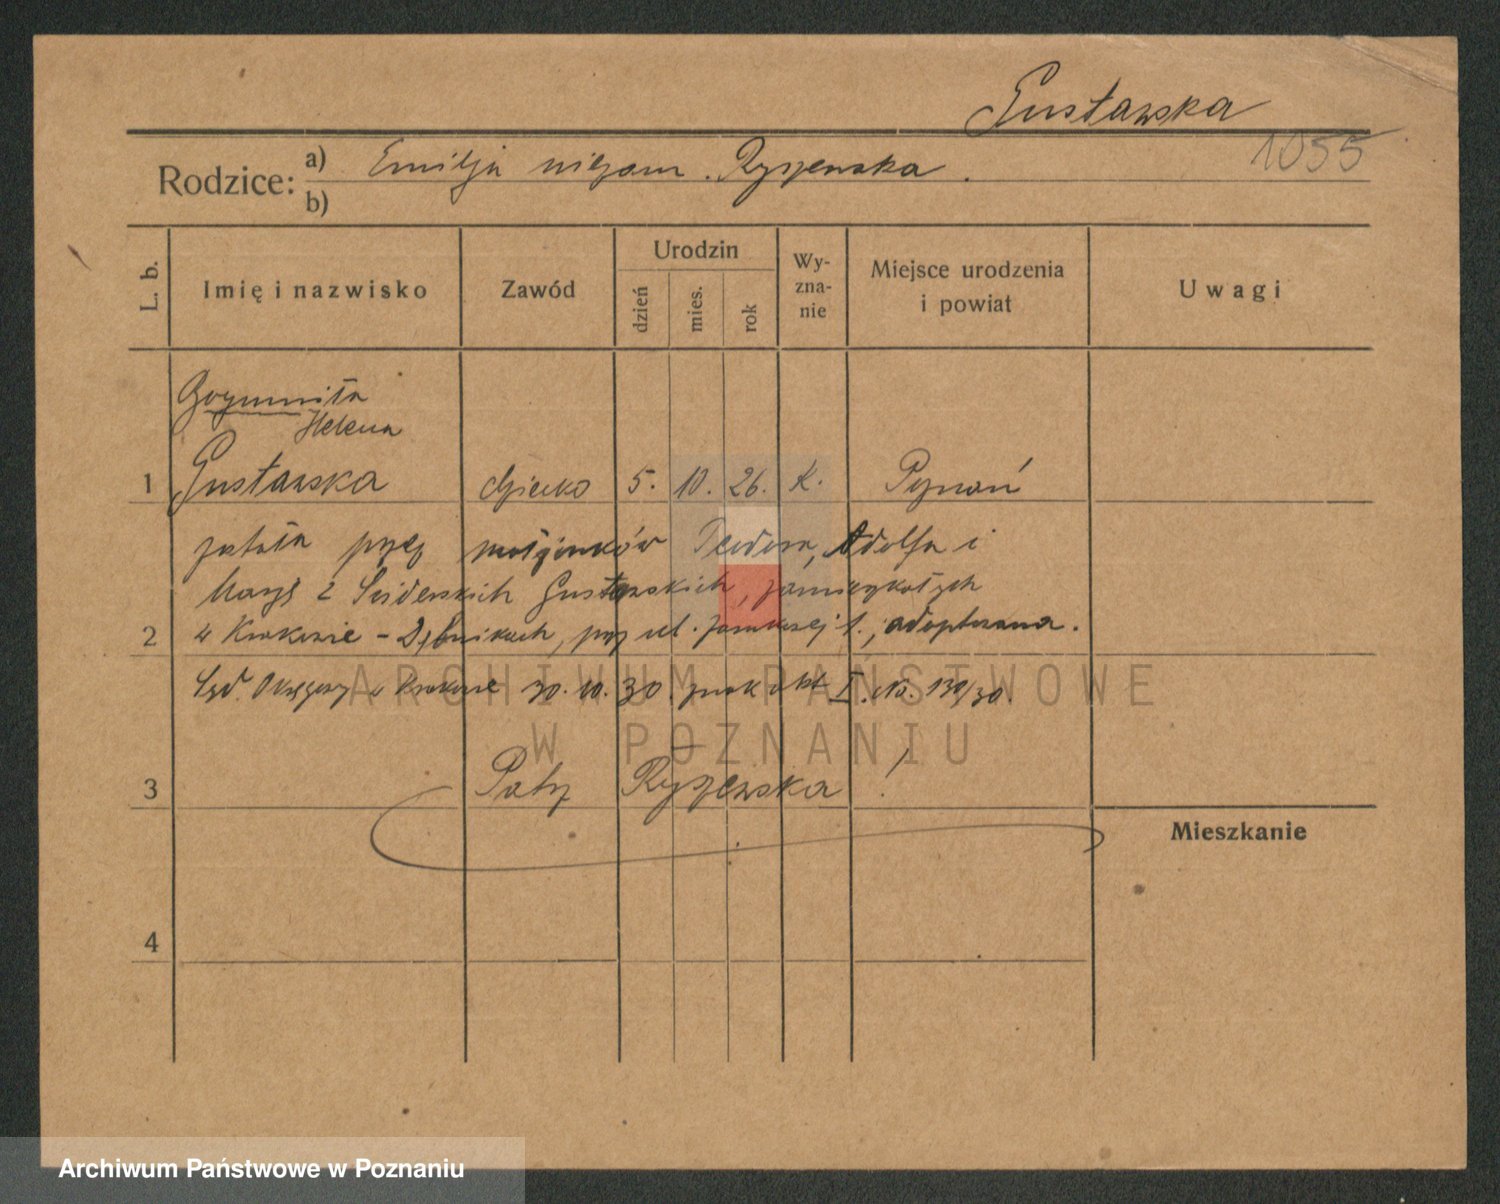 Gustawska
1055
Rodzice: a) Emilja niezam. Ryszewska.
b)
L. b. Imię i nazwisko Zawód Urodzin dzień mies. rok Wy-zna-nie Miejsce urodzenia i powiat Uwagi
Bogumiła
Helena
1 Gustawska dziecko 5. 10. 26. K. Poznań
została przez małżonków Teodora, Adolfa i
Marji z Gustawskich, zamieszkałych
2 w Krakowie - Dębnikach, przy ul. 1., adoptowana.
Sąd Okręgowy w Krakowie 30. 10. 30. znak akt I. No. 130/30.
3 Patrz Ryszewska!
Mieszkanie
4
ARCHIWUM PAŃSTWOWE
W POZNANIU
Archiwum Państwowe w Poznaniu